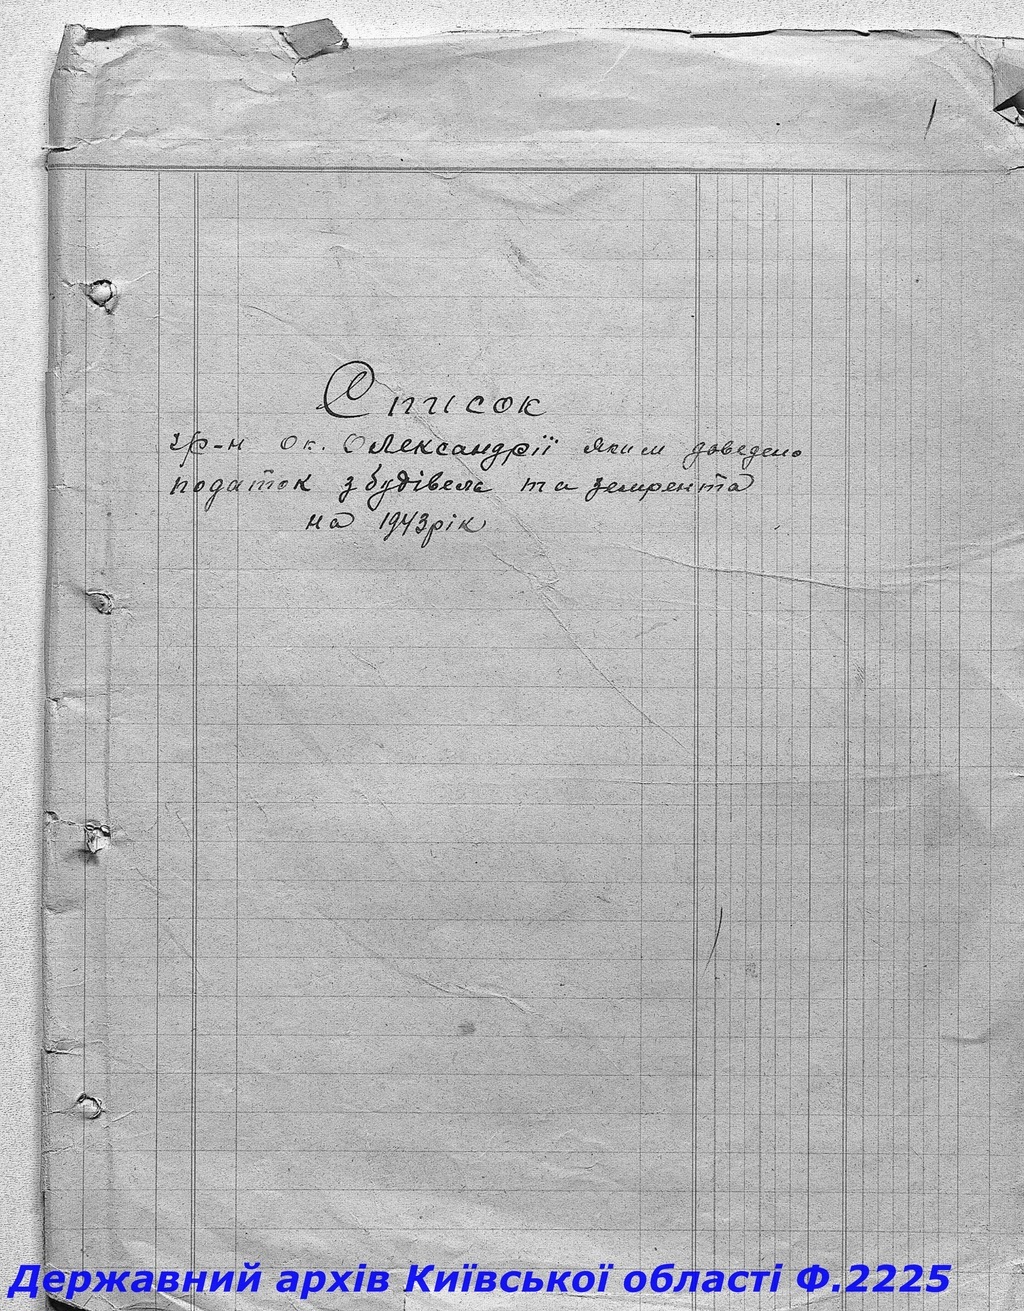 Список
гр-н ок. Олександрії яким доведено
податок з будівель та земрента
на 1943 рік
Державний архів Київської області Ф.2225